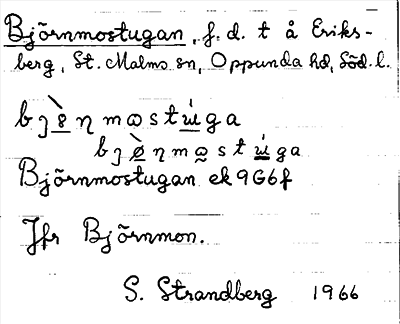 Björnmostugan, f. d. t å Eriks-
berg, St. Malms sn, Oppunda hd, Söd. l.
Björnmostugan ek 9G6f
Jfr Björnmon.
S. Strandberg 1966